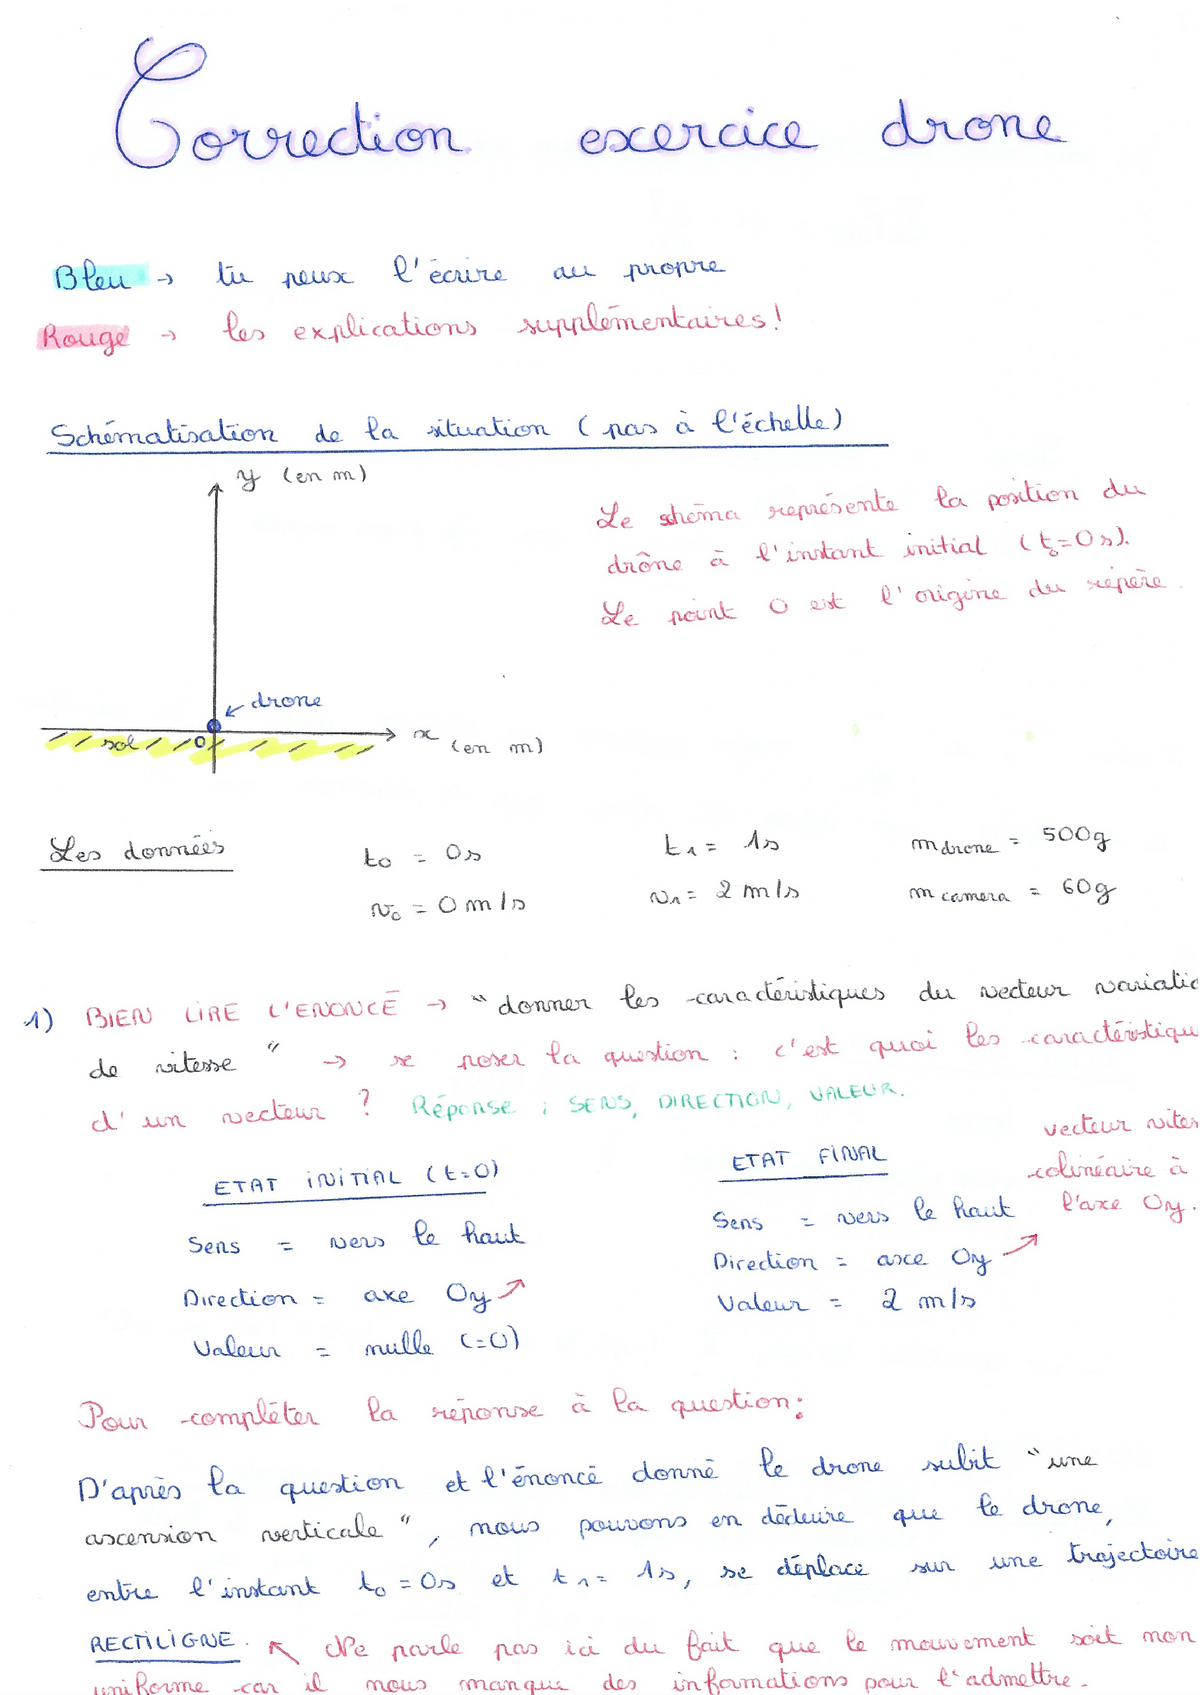 Correction exercice drone
Bleu → tu peux l'écrire au propre
Rouge → les explications supplémentaires!
Schématisation de la situation (pas à l'échelle)
y (en m)
Le schéma représente la position du
drône à l'instant initial (t₀=0s).
Le point O est l'origine du repère.
drone
sol O
x (en m)
Les données
t₀ = 0s
t₁ = 1s
m drone = 500g
v₀ = 0 m/s
v₁ = 2 m/s
m camera = 60g
1) BIEN LIRE L'ENONCÉ → "donner les caractéristiques du vecteur variatio
de vitesse" → se poser la question : c'est quoi les caractéristiqu
d'un vecteur ? Réponse : SENS, DIRECTION, VALEUR.
ETAT INITIAL (t=0)
Sens = vers le haut
Direction = axe Oy
Valeur = nulle (=0)
ETAT FINAL
Sens = vers le haut
Direction = axe Oy
Valeur = 2 m/s
vecteur vites
colinéaire à
l'axe Oy.
Pour compléter la réponse à la question:
D'après la question et l'énoncé donné le drone subit "une
ascension verticale", nous pouvons en déduire que le drone,
entre l'instant t₀ = 0s et t₁ = 1s, se déplace sur une trajectoire
RECTILIGNE. Ne parle pas ici du fait que le mouvement soit non
uniforme car il nous manque des informations pour l'admettre.